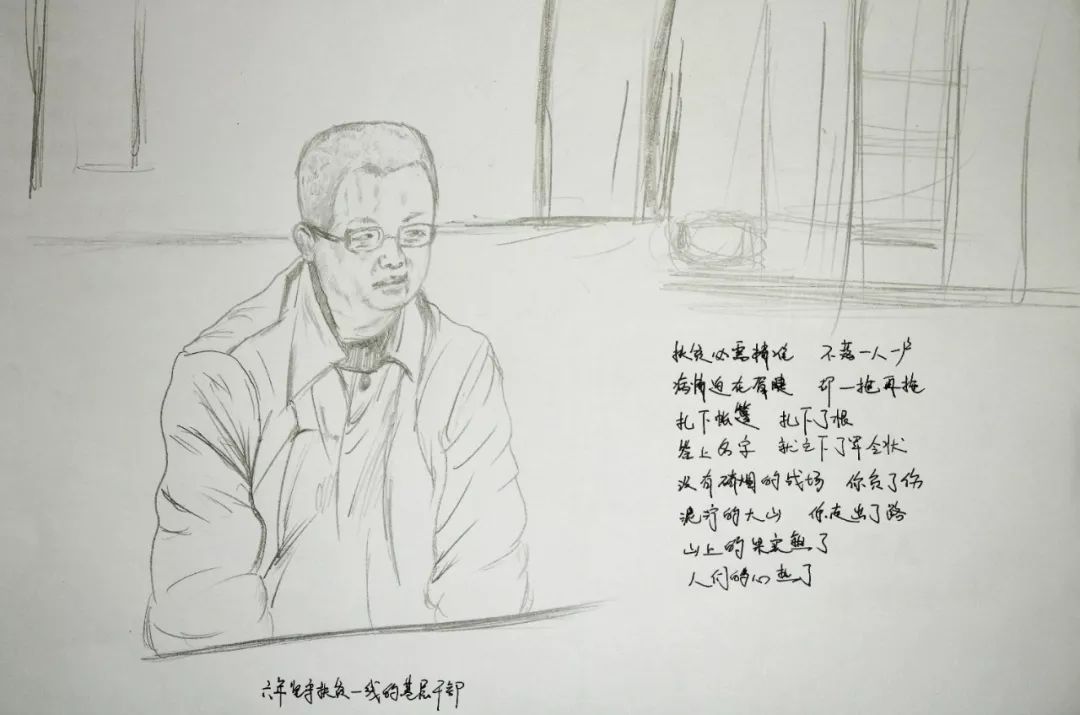 扶贫必需精准 不落一人一户
病痛迫在眉睫 却一拖再拖
扎下帐篷 扎下了根
签上名字 就立下了军令状
没有硝烟的战场 你负了伤
泥泞的大山 你走出了路
山上的果实熟了
人们的心热了
六年坚守扶贫一线的基层干部